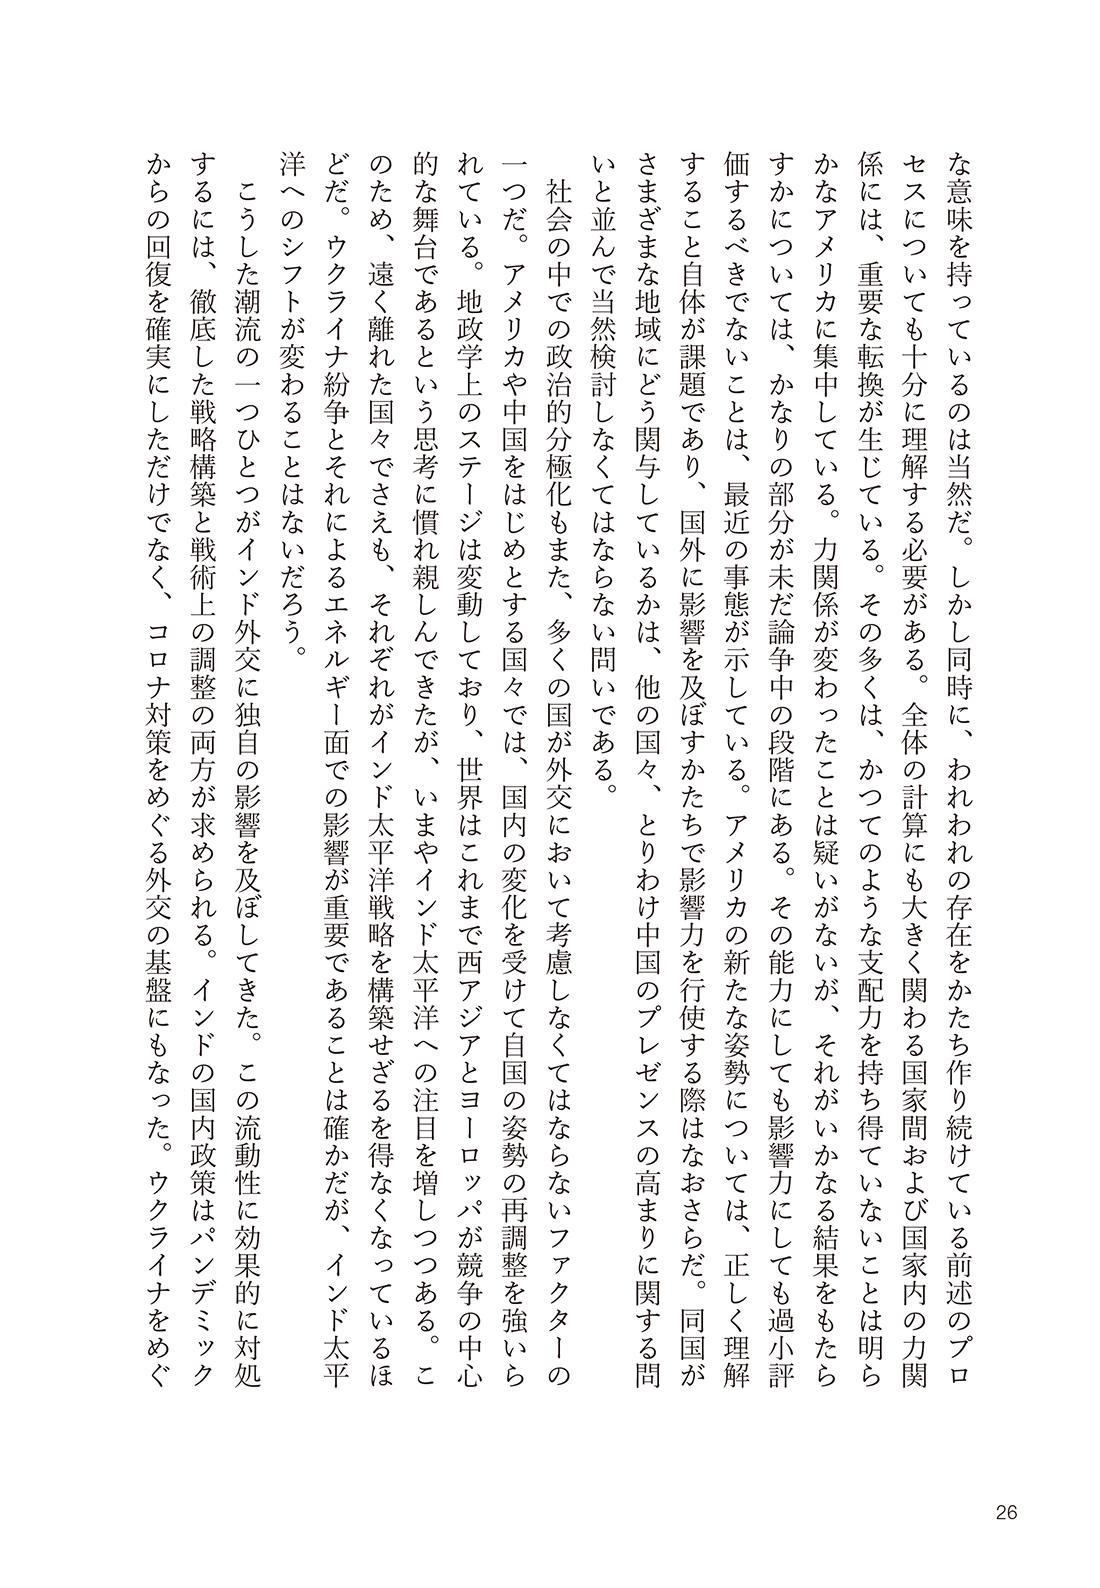 な意味を持っているのは当然だ。しかし同時に、われわれの存在をかたち作り続けている前述のプロ
セスについても十分に理解する必要がある。全体の計算にも大きく関わる国家間および国家内の力関
係には、重要な転換が生じている。その多くは、かつてのような支配力を持ち得ていないことは明ら
かなアメリカに集中している。力関係が変わったことは疑いがないが、それがいかなる結果をもたら
すかについては、かなりの部分が未だ論争中の段階にある。その能力にしても影響力にしても過小評
価するべきでないことは、最近の事態が示している。アメリカの新たな姿勢については、正しく理解
すること自体が課題であり、国外に影響を及ぼすかたちで影響力を行使する際はなおさらだ。同国が
さまざまな地域にどう関与しているかは、他の国々、とりわけ中国のプレゼンスの高まりに関する問
いと並んで当然検討しなくてはならない問いである。
社会の中での政治的分極化もまた、多くの国が外交において考慮しなくてはならないファクターの
一つだ。アメリカや中国をはじめとする国々では、国内の変化を受けて自国の姿勢の再調整を強いら
れている。地政学上のステージは変動しており、世界はこれまで西アジアとヨーロッパが競争の中心
的な舞台であるという思考に慣れ親しんできたが、いまやインド太平洋への注目を増しつつある。こ
のため、遠く離れた国々でさえも、それぞれがインド太平洋戦略を構築せざるを得なくなっているほ
どだ。ウクライナ紛争とそれによるエネルギー面での影響が重要であることは確かだが、インド太平
洋へのシフトが変わることはないだろう。
こうした潮流の一つひとつがインド外交に独自の影響を及ぼしてきた。この流動性に効果的に対処
するには、徹底した戦略構築と戦術上の調整の両方が求められる。インドの国内政策はパンデミック
からの回復を確実にしただけでなく、コロナ対策をめぐる外交の基盤にもなった。ウクライナをめぐ
26